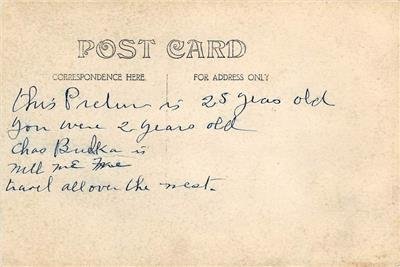 POST CARD
CORRESPONDENCE HERE.
FOR ADDRESS ONLY
this Pictur is 25 yeas old
You were 2 years old
Chas Budka is
with me
travel all over the west.